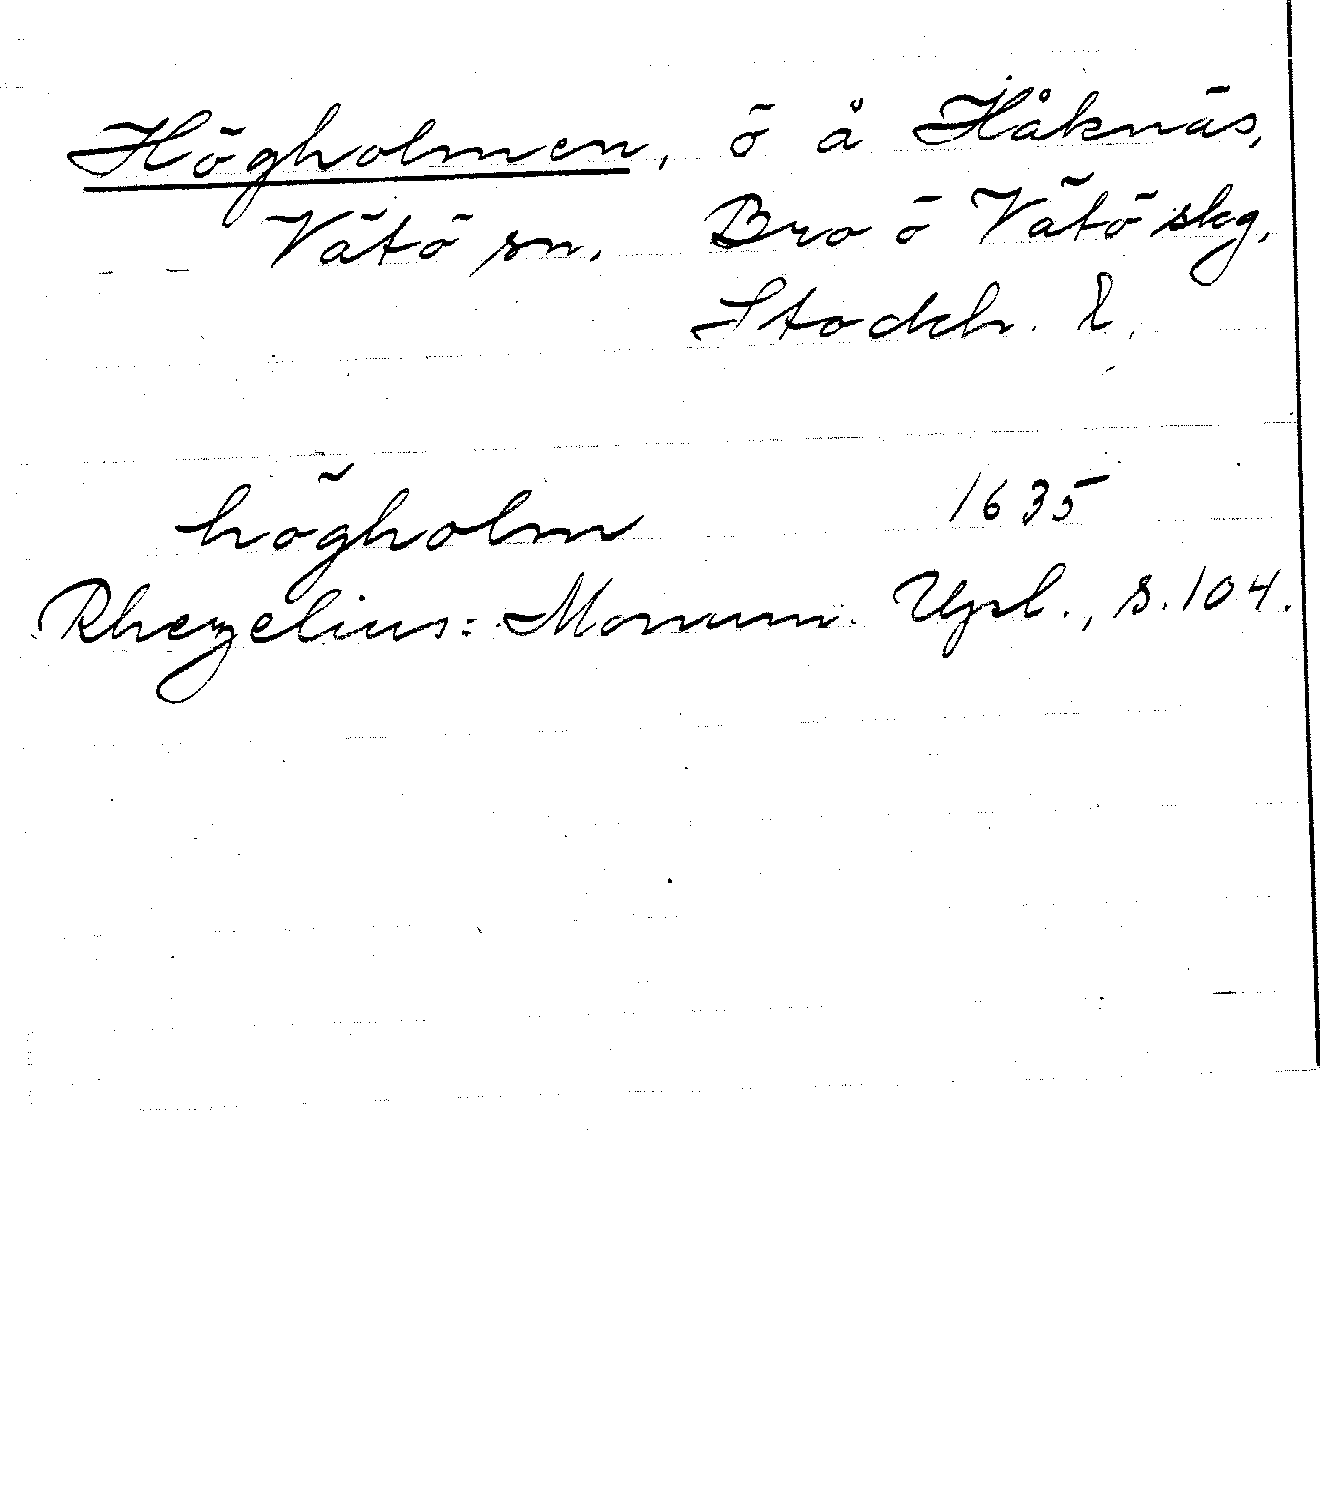 Högholmen, ö å Håknäs,
Vätö sn. Bro o Vätö skg,
Stockh. l.
högholm 1635
Rhezelius: Monum. Upl., s. 104.